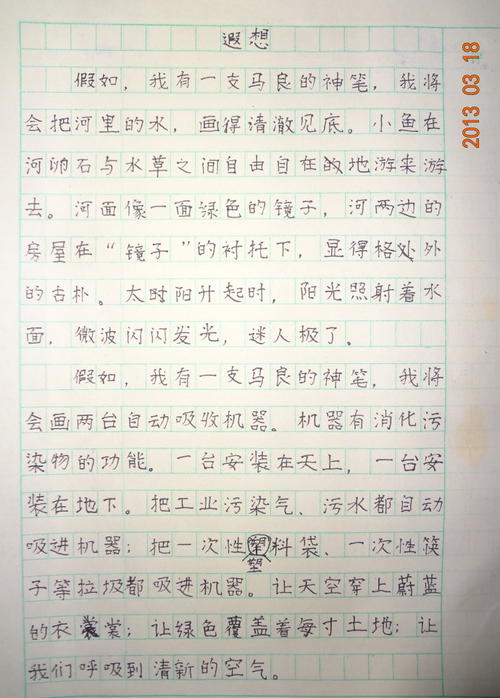 遐想
2013 03 18
假如，我有一支马良的神笔，我将
会把河里的水，画得清澈见底。小鱼在
河卵石与水草之间自由自在的地游来游
去。河面像一面绿色的镜子，河两边的
房屋在“镜子”的衬托下，显得格处外
的古朴。太时阳升起时，阳光照射着水
面，微波闪闪发光，迷人极了。
假如，我有一支马良的神笔，我将
会画两台自动吸收机器。机器有消化污
染物的功能。一台安装在天上，一台安
装在地下。把工业污染气、污水都自动
吸进机器；把一次性塑料袋、一次性筷
塑
子等垃圾都吸进机器。让天空穿上蔚蓝
的衣裳；让绿色覆盖着每寸土地；让
我们呼吸到清新的空气。